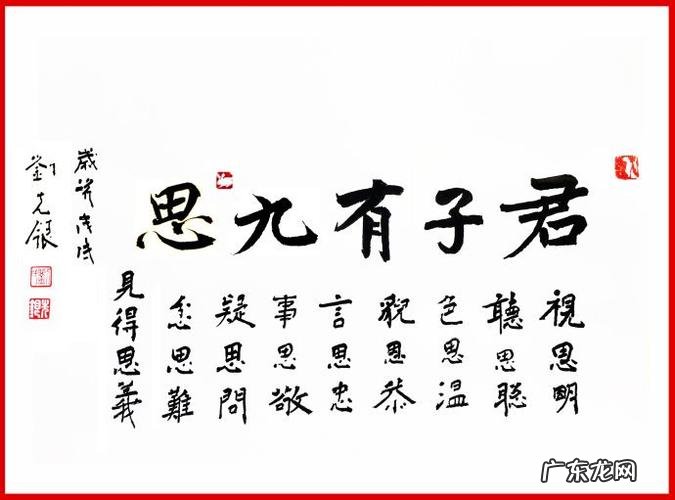 君子有九思
視思明
聽思聰
色思温
貌思恭
言思忠
事思敬
疑思問
忿思難
見得思義
戊戌
劉克銀
广东龙网